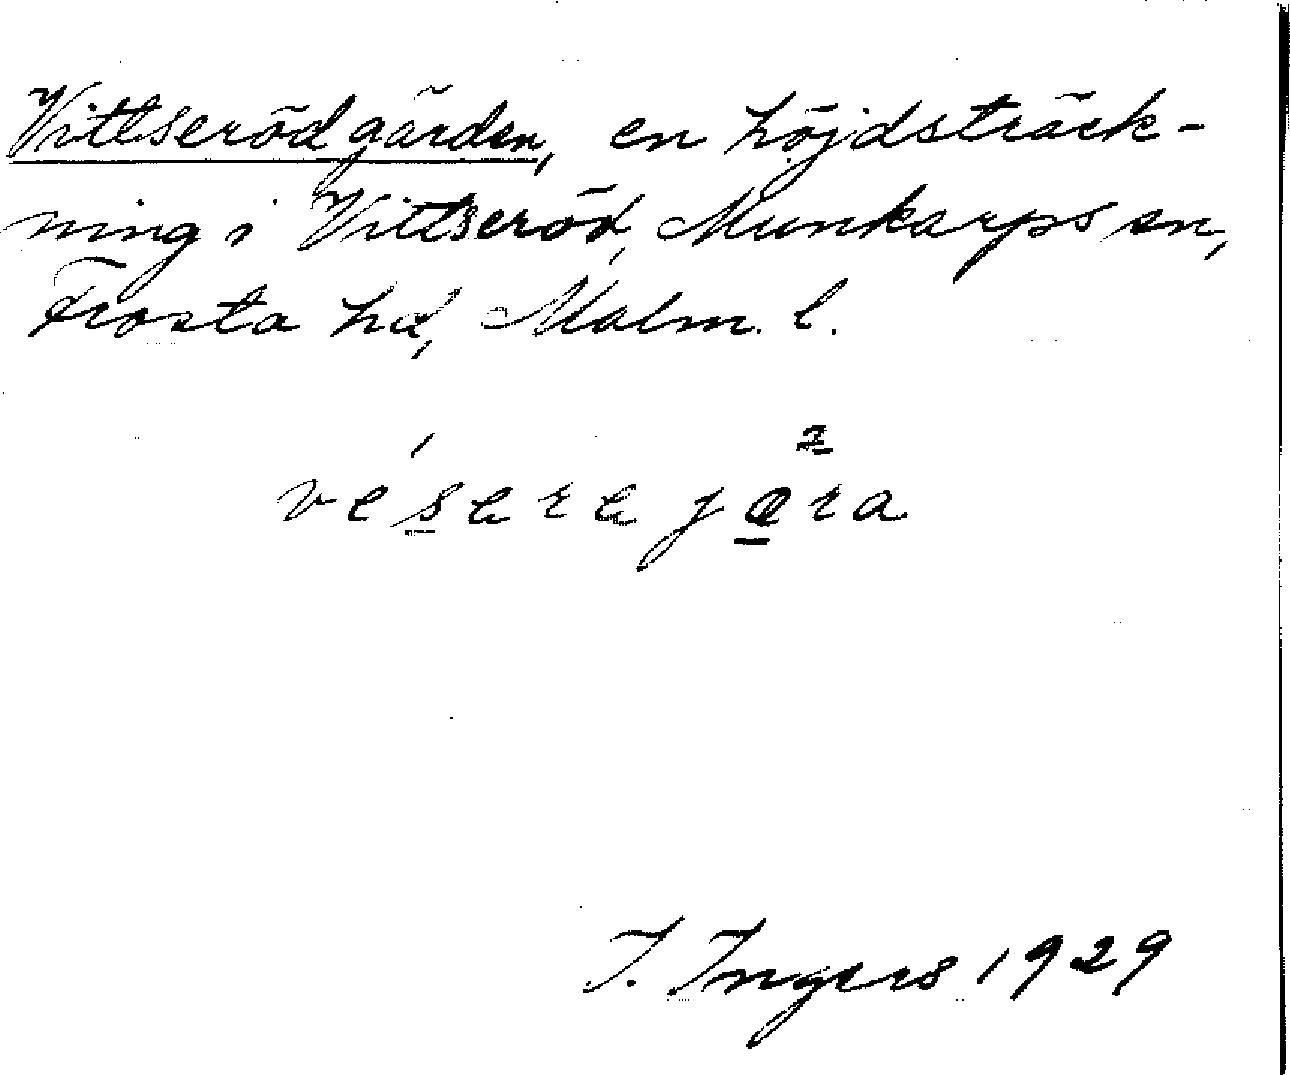 Vittserödgården, en höjdsträck-
ning i Vittseröd, Munkarps sn,
Frosta hd, Malm. l.
I. Ingers 1929